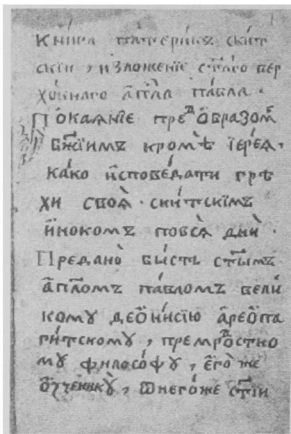 Книга патерикъ скит
скїи, изложенїе ст҃аго вер
ховнаго ап҃ла павла.
Покаянїе пред̾ образом̾
бж҃їимъ кромѣ їерея,
како исповѣдати грѣ
хи своя. скитскїмъ
инокомъ повся дни.
Предано бысть ст҃ымъ
ап҃ломъ павломъ вели
кому деѡнисїю ареѡпа
гитскому, премрⷣостно
му философу, его же
ѹченикꙋ, ѿнегоже ст҃їи